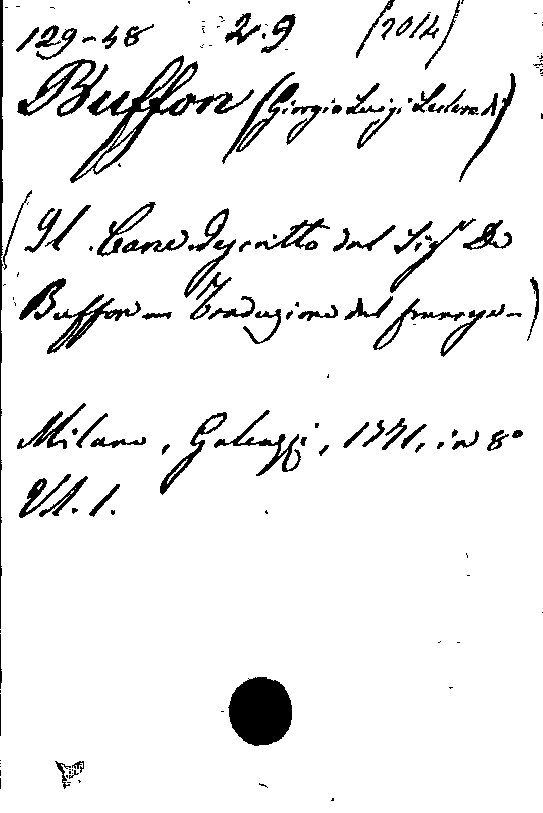 129-48 2.9 (2014)
Buffon (Giorgio Luigi Leclerc di)
(Il Cane descritto dal Sig.r De
Buffon — Traduzione dal francese —)
Milano, Galeazzi, 1771, in 8°
Vol. 1.